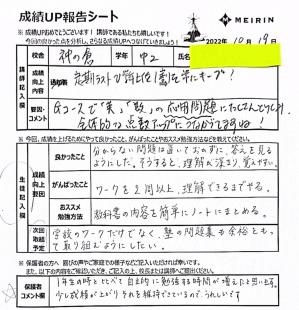 成績UP報告シート
MEIRIN
成績UPおめでとうございます！講師である私たちも嬉しいです！
今回の良かった点を分析し、さらなる成績UPへつなげていきましょう！
2022年 10月 19日
校名
神の倉
学年
中2
氏名
講師記入欄
成績向上内容
定期テスト
を常にキープ！
要因・コメント
Gコースで「英」「数」の応用問題に
全体的な点数
※今回、成績を上げるためにやって良かったこと、がんばったことやおススメ勉強方法などを教えてください。
生徒記入欄
成績向上要因
良かったこと
分からない問題は置いておかずに、答えを見る
ようにした。そうすると、理解が深まり、覚えやすい。
がんばったこと
ワークを2周以上、理解できるまでやる。
おススメ勉強方法
教科書の内容を簡単にノートにまとめる。
次回取組予定
学校のワークだけでなく、塾の問題集も余裕をもっ
て取り組むようにしたい。
※保護者の方へ　喜びの声やご家庭での様子などご記入いただければ幸いです。
また、以下の内容をご確認いただき、ご記入の上、校長または講師へご提出ください。
保護者コメント欄
1年生の時と比べて自主的に勉強する時間が増えたと思います。
少し成績が上がりそれを維持できているので、うれしいです